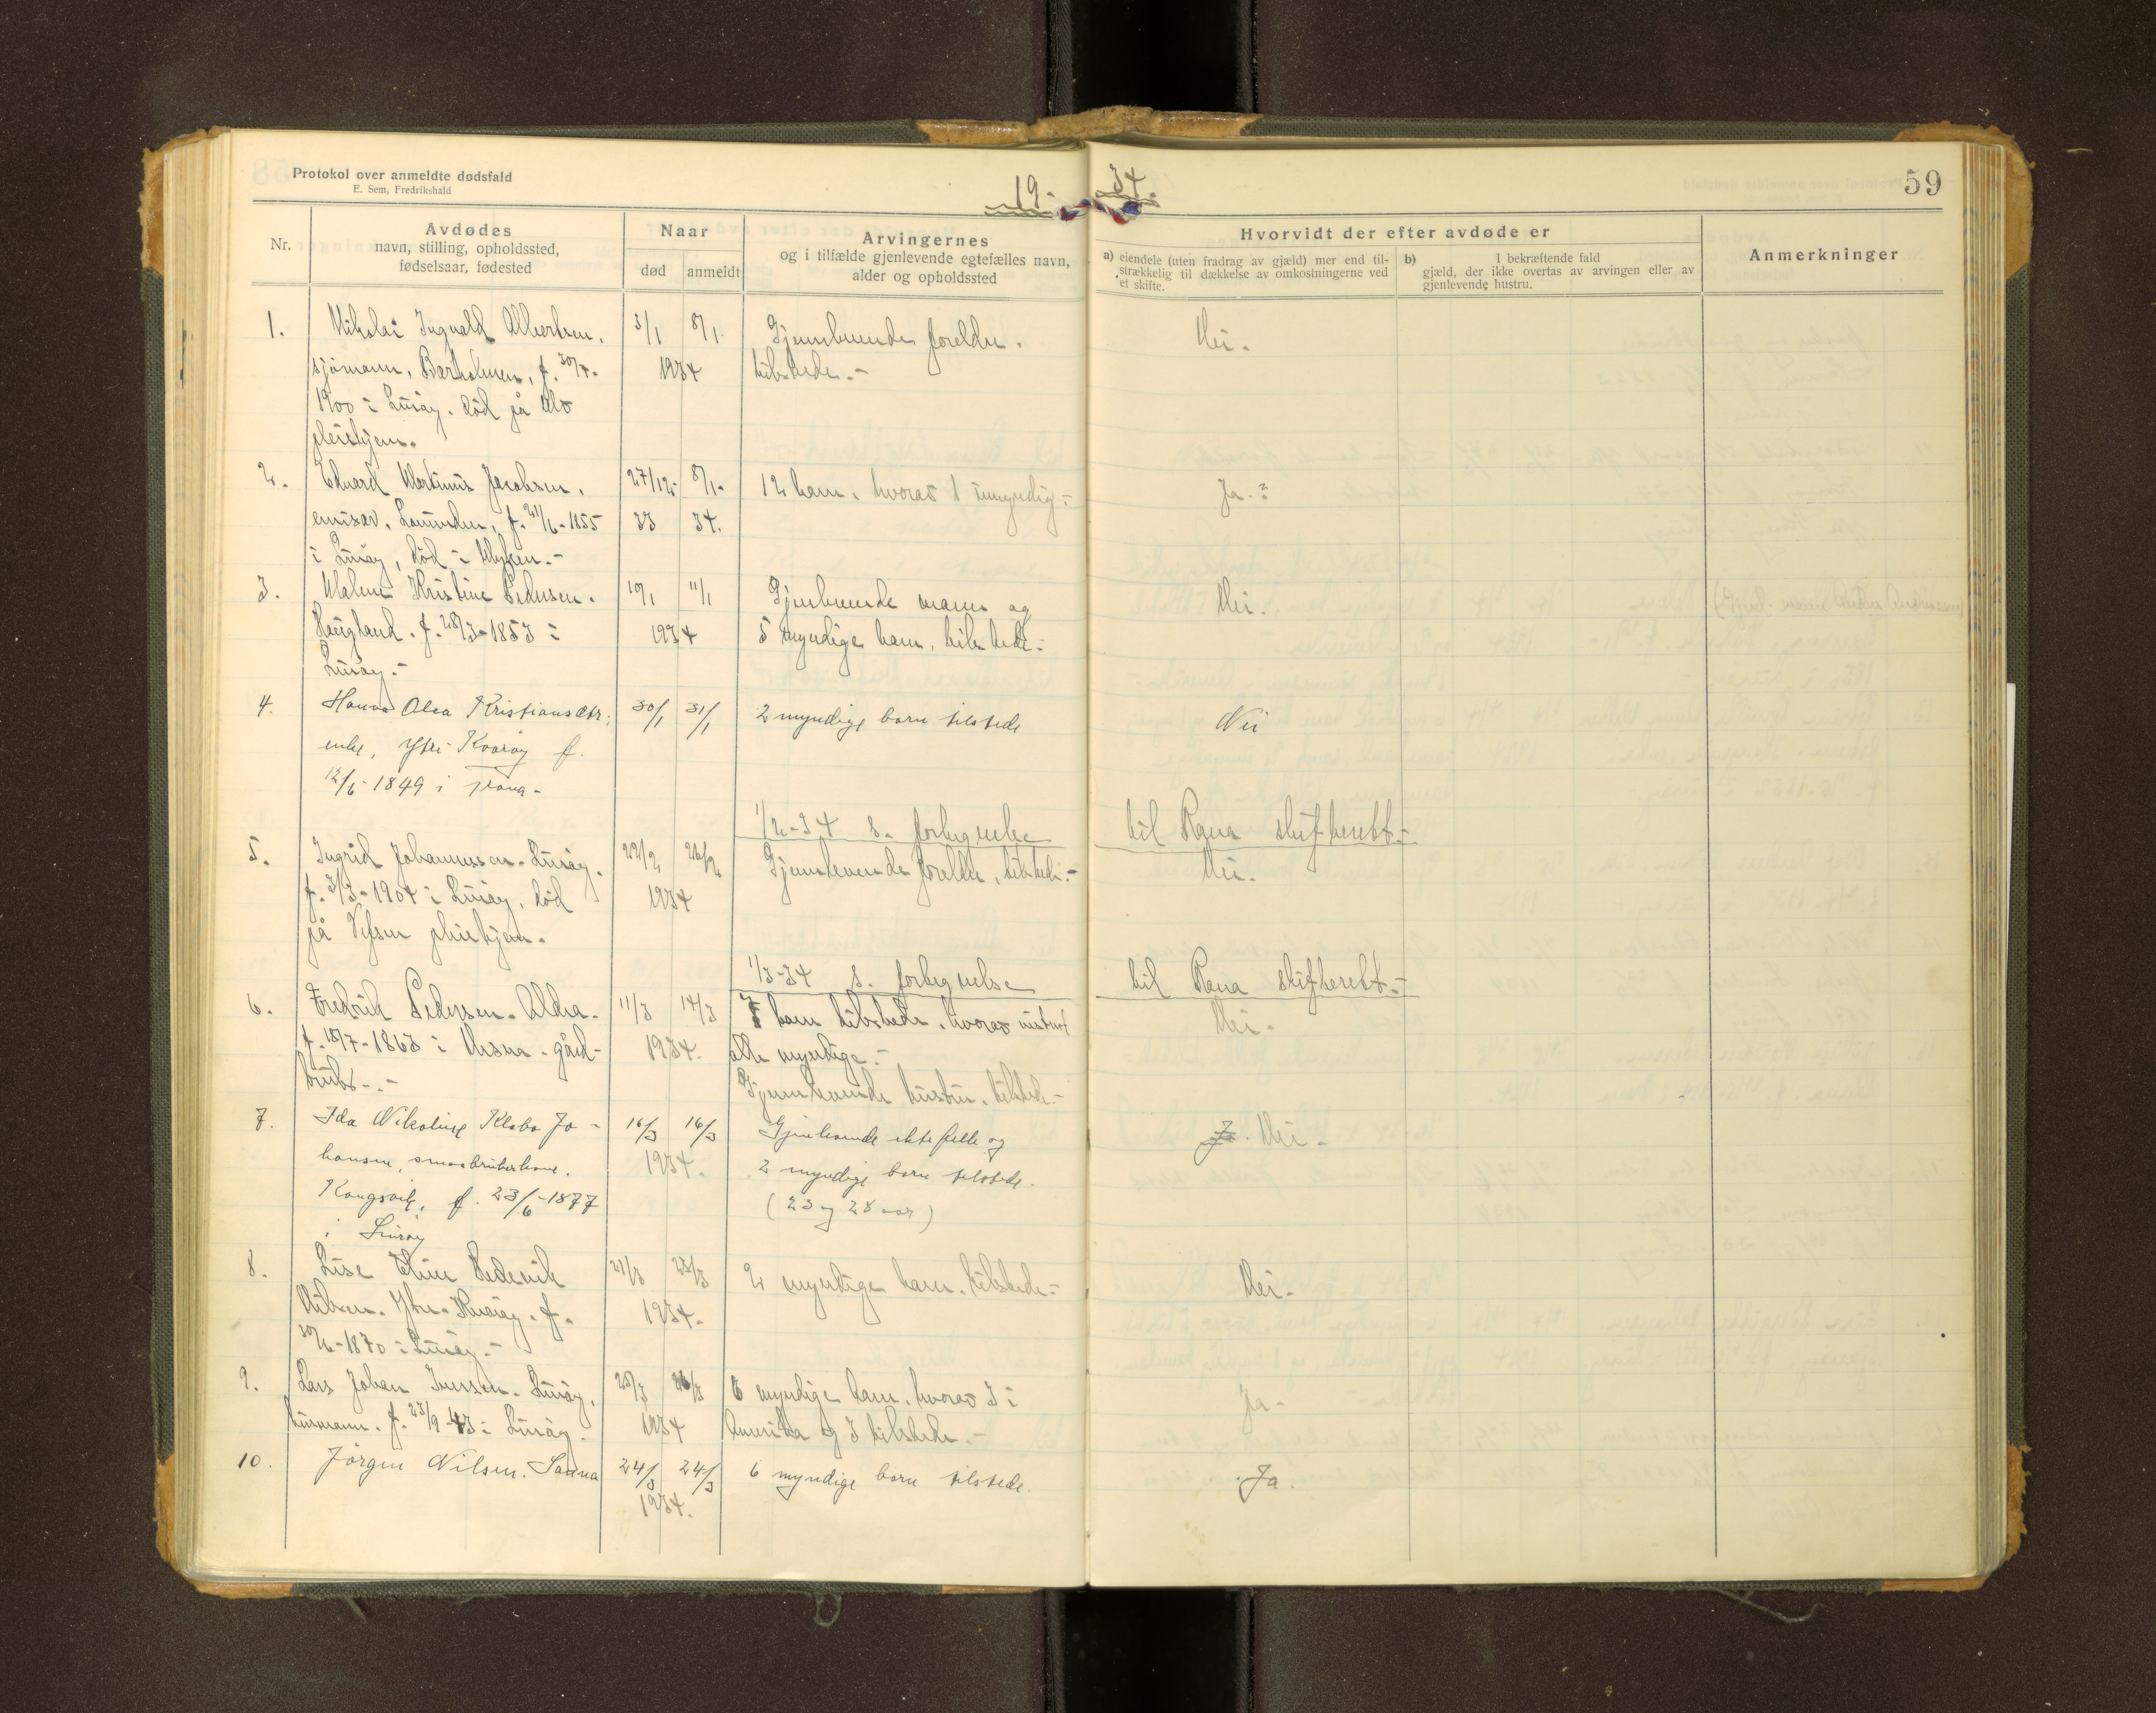 Protokol over anmeldte dødsfald
E. Sem, Fredrikshald
19- 34.
59
Nr.
Avdødes
navn, stilling, opholdssted,
fødselsaar, fødested
Naar
død anmeldt
Arvingernes
og i tilfælde gjenlevende egtefælles navn,
alder og opholdssted
Hvorvidt der efter avdøde er
a) eiendele (uten fradrag av gjæld) mer end til-
strækkelig til dækkelse av omkostningerne ved
et skifte.
b) I bekræftende fald
gjæld, der ikke overtas av arvingen eller av
gjenlevende hustru.
Anmerkninger
1. Nikolai Ingvald Albertsen, 3/1 8/1. Gjenlevende foreldre, Nei.
sjømann, f. 30/7- 1934 tilstede.-
1900 i Lurøy. død på
pleiehjem.
2. Edvard Martinus Jacobsen, 27/12- 8/1- 12 barn, hvorav 1 umyndig.- Ja.-
emisær, Lovunden, f. 21/6-1855 33 34.
i Lurøy, død i Myken.-
3. Malene Kristine Pedersen. 10/1 11/1 Gjenlevende mann og Nei.
Haugland. f. 28/3-1853 i 1934 5 myndige barn, tilstede.-
Lurøy.-
4. Hanna Olea Kristiansdtr; 30/1 31/1 2 myndige barn tilstede Nei
enke, Ytre Kvarøy f.
12/6-1849 i Træna-
1/2-34 s. fortegnelse til Rana skifterett.-
5. Ingrid Johannessen. Lurøy. 22/2 26/2 Gjenlevende foreldre, tilstede.- Nei.
f. 3/3-1904 i Lurøy, død 1934
på Vefsn pleiehjem.
1/3-34 s. fortegnelse til Rana skifterett.-
6. Fredrik Pedersen. Aldra. 11/3 14/3 7 barn tilstede, hvorav Nei.
f. 18/7-1863 i gård- 1934. alle myndige.-
bruker.-
Gjenlevende hustru, tilstede.-
7. Ida Nikoline Klebo Jo- 16/3 16/3 Gjenlevende ektefelle og Ja. Nei.
hansen, smaabrukerkone. 1934. 2 myndige barn tilstede.
Kongsvik, f. 23/6-1877 (23 og 28 aar)
i Lurøy
8. Lise Hedevik 21/3 23/3 2 myndige barn, tilstede.- Nei.
Nilsen. Ytre Kvarøy. f. 1934.
30/6-1870 i Lurøy.-
9. Lars Johan Iversen. Lurøy, 23/3 6 myndige barn, hvorav 3 i Ja.-
f. 23/9-43 i Lurøy. 1934 Amerika og 3 tilstede.-
10. Jørgen Nilsen. Sauna 24/3 24/3 6 myndige barn tilstede. Ja.
1934.